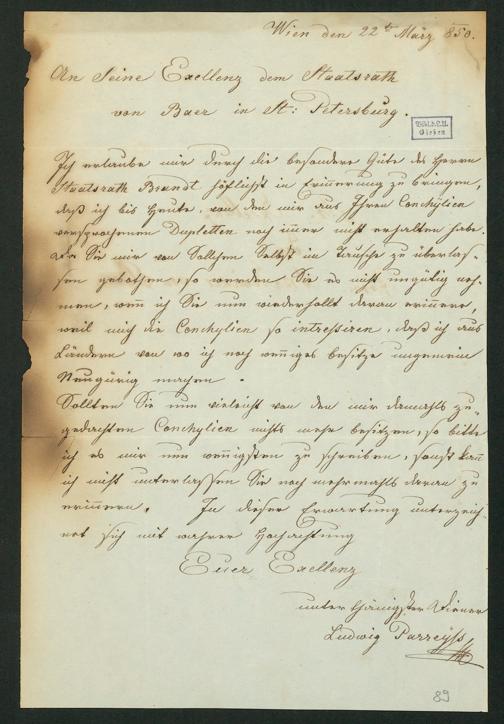 Wien den 22ten März 850.
An Seine Exellenz dem Staatsrath
von Baer in St: Petersburg.
Bibl. d. L. U.
Gießen
Ich erlaube mir durch die besondere Güte des Herrn
Staatsrath Brandt höflichst in Erinerung zu bringen,
daß ich bis Heute, von den mir aus Ihren Conchÿlien
versprochenen Dupletten noch imer nicht erhalten habe.
Da Sie mir von Sollchen Selbst im Tausche zu überlas-
sen gebothen, so werden Sie es nicht ungütig neh-
men, wenn ich Sie nun wiederhollt daran erinere,
weil mich die Conchylien so intressiren, daß ich aus
Ländern von wo ich noch weniges besitze ungemein
Neugürig machen.
Sollten Sie nun vieleicht von den mir damahls zu-
gedachten Conchylien nichts mehr besitzen, so bitte
ich es mir nun wenigsten zu schreiben, sonst kan
ich nicht unterlassen Sie noch mehrmahls daran zu
erinern. In dieser Erwartung unterzeich-
net sich mit wahrer Hochachtung
Euer Exellenz
unterthänigster Diener
Ludwig Parreÿss
89